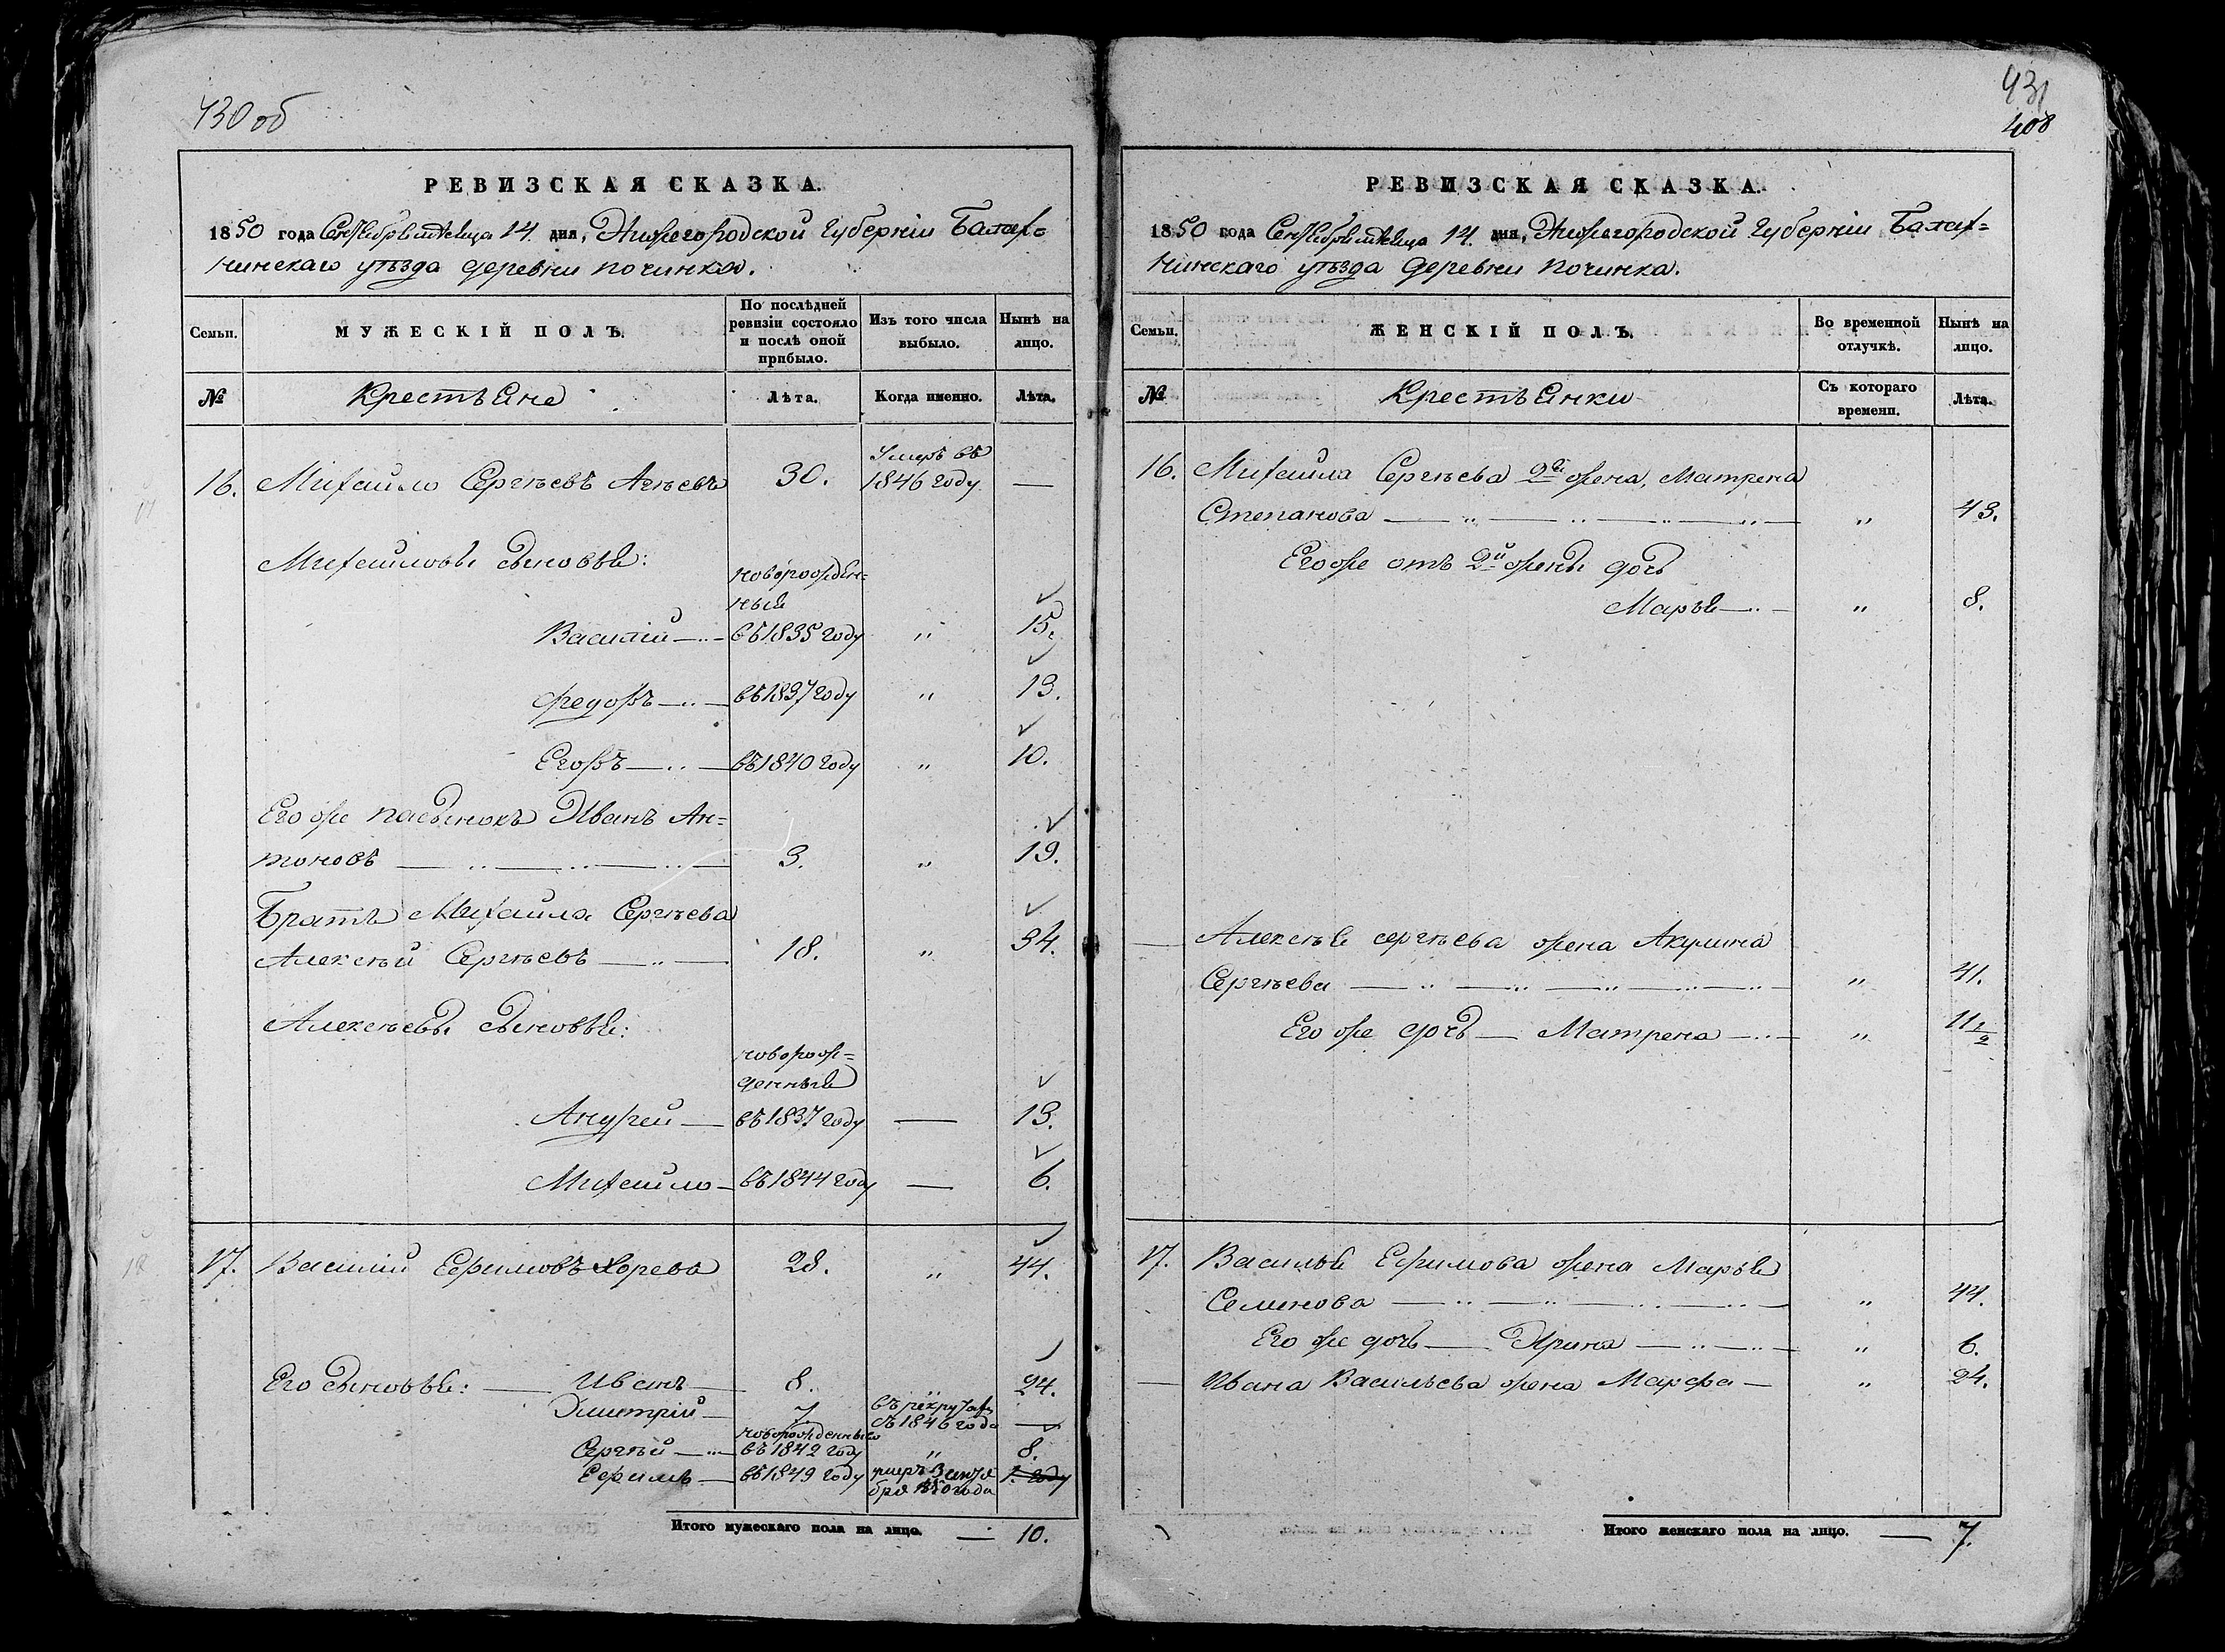 430 об
РЕВИЗСКАЯ СКАЗКА.
1850 года Сентября месяца 14 дня, Нижегородской Губерніи Балах=
нинскаго уѣзда деревни починка.
Семьи.
МУЖЕСКІЙ ПОЛЪ.
По послѣдней ревизіи состояло и послѣ оной прибыло.
Изъ того числа выбыло.
Нынѣ на лицо.
№
Крестьяне
Лѣта.
Когда именно.
Лѣта.
16. Михайло Сергѣевъ Агѣевъ 30. Умеръ въ 1846 году —
Михайловы сыновья:
новорожден=
ный
Василій — въ 1835 году „ 15.
Федоръ — въ 1837 году „ 13.
Егоръ — въ 1840 году „ 10.
Его же пасынокъ Иванъ Ан=
тоновъ — 3. „ 19.
Братъ Михайла Сергѣева
Алексѣй Сергѣевъ — 18. „ 34.
Алексѣевы сыновья:
новорож=
денный
Андрей — въ 1837 году — 13.
Михайло — въ 1844 году — 6.
17. Василій Ефимовъ Хорева 28. „ 44.
Его сыновья: — Иванъ — 8. 24.
Дмитрій — 7. въ рекрутахъ съ 1846 года —
новорожденный
Сергѣй — въ 1842 году „ 8.
Ефимъ — въ 1849 году умеръ 3 сентя
бря 1850 года 1. году
Итого мужескаго пола на лицо. — 10.
431
408
РЕВИЗСКАЯ СКАЗКА.
1850 года Сентября месяца 14 дня, Нижегородской Губерніи Балах=
нинскаго уѣзда деревни починка.
Семьи.
ЖЕНСКІЙ ПОЛЪ.
Во временной отлучкѣ.
Нынѣ на лицо.
№
Крестьянки
Съ котораго времени.
Лѣта.
16. Михайла Сергѣева 2я жена, Матрена
Степанова — „ 43.
Его же отъ 2й жены дочь
Марья — „ 8.
— Алексѣя сергѣева жена Акулина
Сергѣева — „ 41.
Его же дочь — Матрена — „ 11 1/2
17. Василья Ефимова жена Марья
Семенова — „ 44.
Его же дочь — Ирина — „ 6.
— Ивана Васильева жена Марфа — „ 24.
Итого женскаго пола на лицо. — 7.